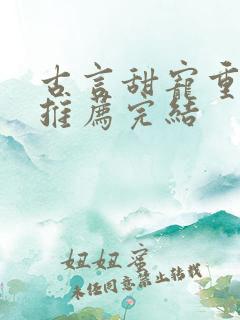 古言甜宠重
推荐完结
妞妞蜜
未经同意禁止转载